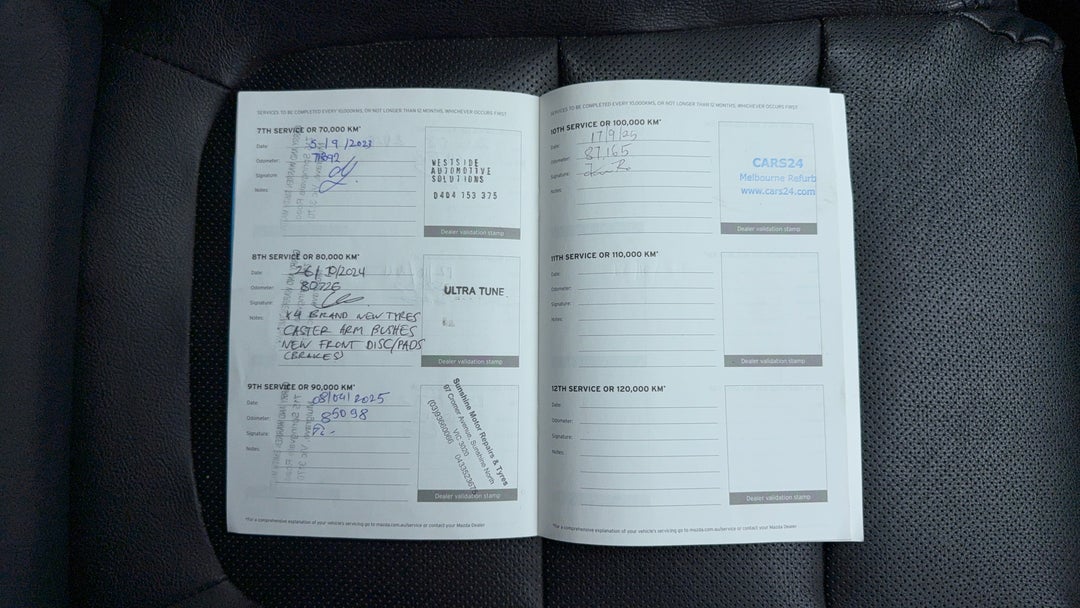 SERVICES TO BE COMPLETED EVERY 10,000KMS, OR NOT LONGER THAN 12 MONTHS, WHICHEVER OCCURS FIRST
7TH SERVICE OR 70,000 KM*
Date: 5/9/2023
Odometer:
Signature:
Notes:
WESTSIDE
AUTOMOTIVE
SOLUTIONS
0404 153 375
Dealer validation stamp
8TH SERVICE OR 80,000 KM*
Date: 26/10/2024
Odometer: 80726
Signature:
Notes: X4 BRAND NEW TYRES
CASTER ARM BUSHES
NEW FRONT DISC/PADS
(BRAKES)
ULTRA TUNE
Dealer validation stamp
9TH SERVICE OR 90,000 KM*
Date: 08/04/2025
Odometer: 85098
Signature:
Notes:
Sunshine Motor Repairs & Tyres
97 Cromer Avenue, Sunshine North
VIC 3020
(03)93660086
Dealer validation stamp
*For a comprehensive explanation of your vehicle's servicing go to mazda.com.au/service or contact your Mazda Dealer
SERVICES TO BE COMPLETED EVERY 10,000KMS, OR NOT LONGER THAN 12 MONTHS, WHICHEVER OCCURS FIRST
10TH SERVICE OR 100,000 KM*
Date: 17/9/25
Odometer: 87,165
Signature:
Notes:
CARS24
Melbourne Refurb
www.cars24.com
Dealer validation stamp
11TH SERVICE OR 110,000 KM*
Date:
Odometer:
Signature:
Notes:
Dealer validation stamp
12TH SERVICE OR 120,000 KM*
Date:
Odometer:
Signature:
Notes:
Dealer validation stamp
*For a comprehensive explanation of your vehicle's servicing go to mazda.com.au/service or contact your Mazda Dealer